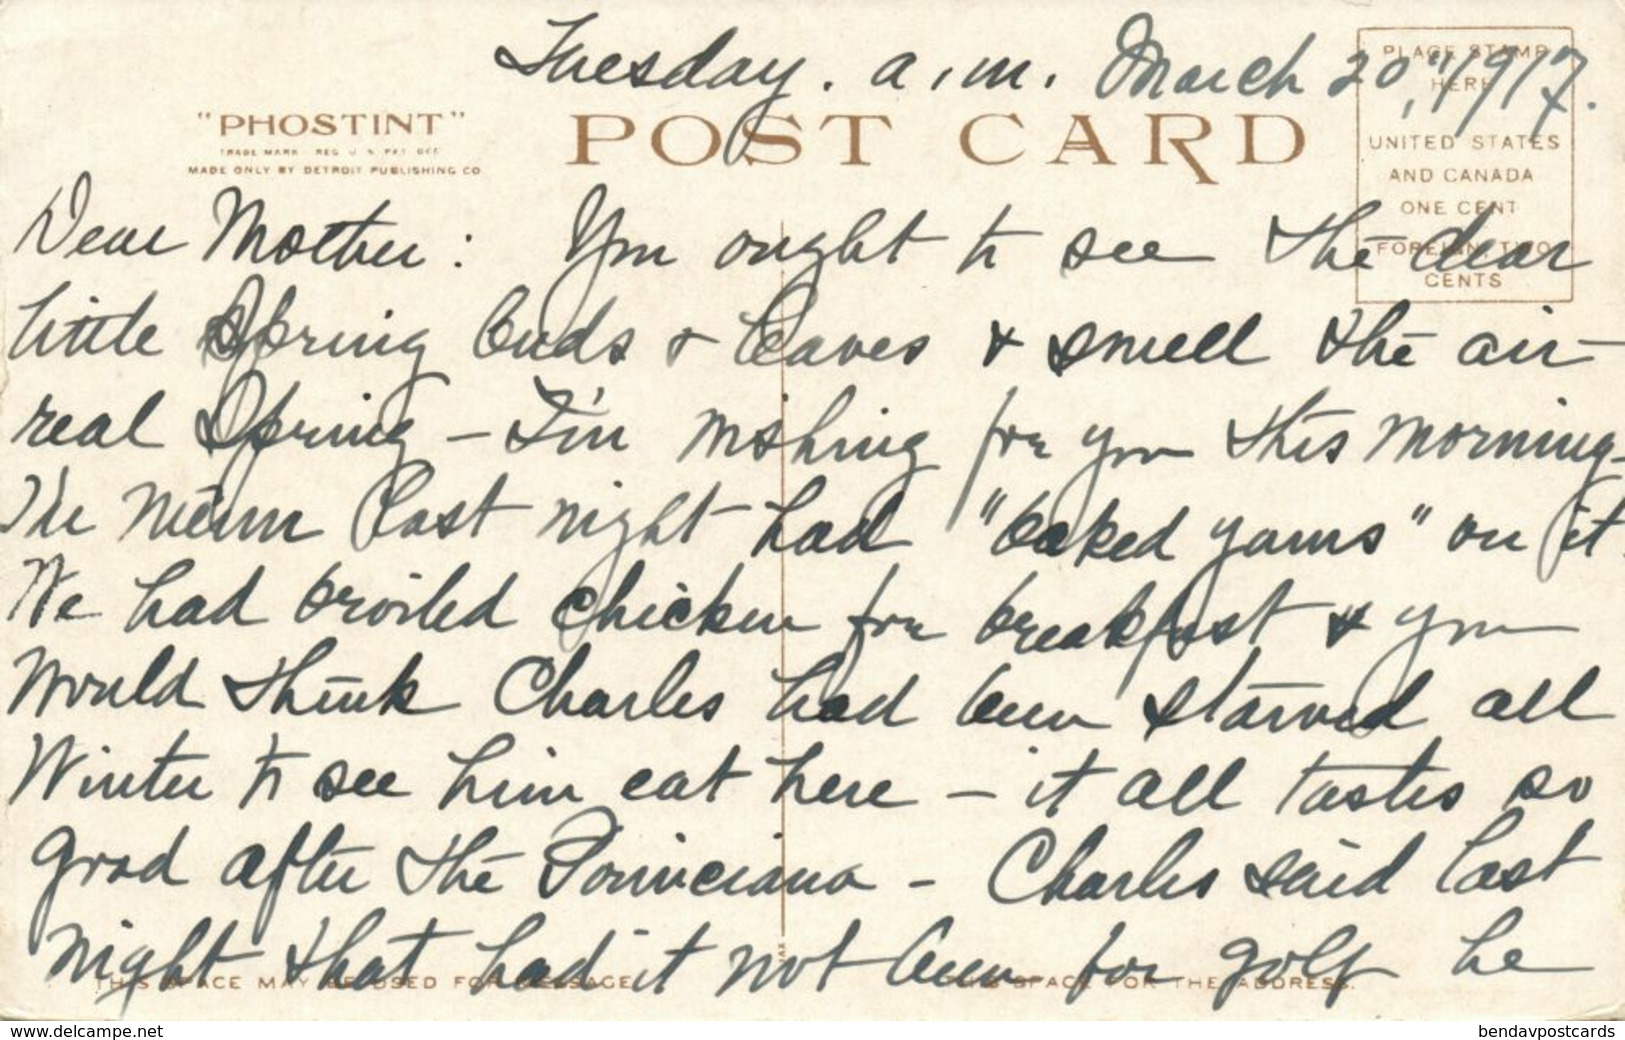 Tuesday. a.m. March 20, 1917.
PLACE STAMP
HERE
UNITED STATES
AND CANADA
ONE CENT
FOREIGN TWO
CENTS
"PHOSTINT"
TRADE MARK REG U.S. PAT OFF
MADE ONLY BY DETROIT PUBLISHING CO
POST CARD
Dear Mother: You ought to see the dear
little Spring buds & leaves & smell the air –
real Spring – I'm wishing for you this morning –
The menu last night had "baked yams" on it.
We had broiled chicken for breakfast & you
would think Charles had been starved all
Winter to see him eat here – it all tastes so
good after the Poinciana – Charles said last
night that had it not been for golf he
THIS SPACE MAY BE USED FOR MESSAGE
THIS SPACE FOR THE ADDRESS.
www.delcampe.net
bendavpostcards